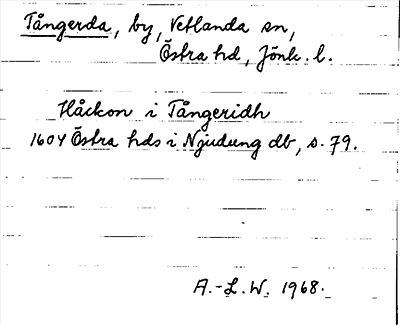 Tångerda, by, Vetlanda sn,
Östra hd, Jönk. l.
Håckon i Tångeridh
1604 Östra hds i Njudung db, s. 79.
A.-L.W. 1968.